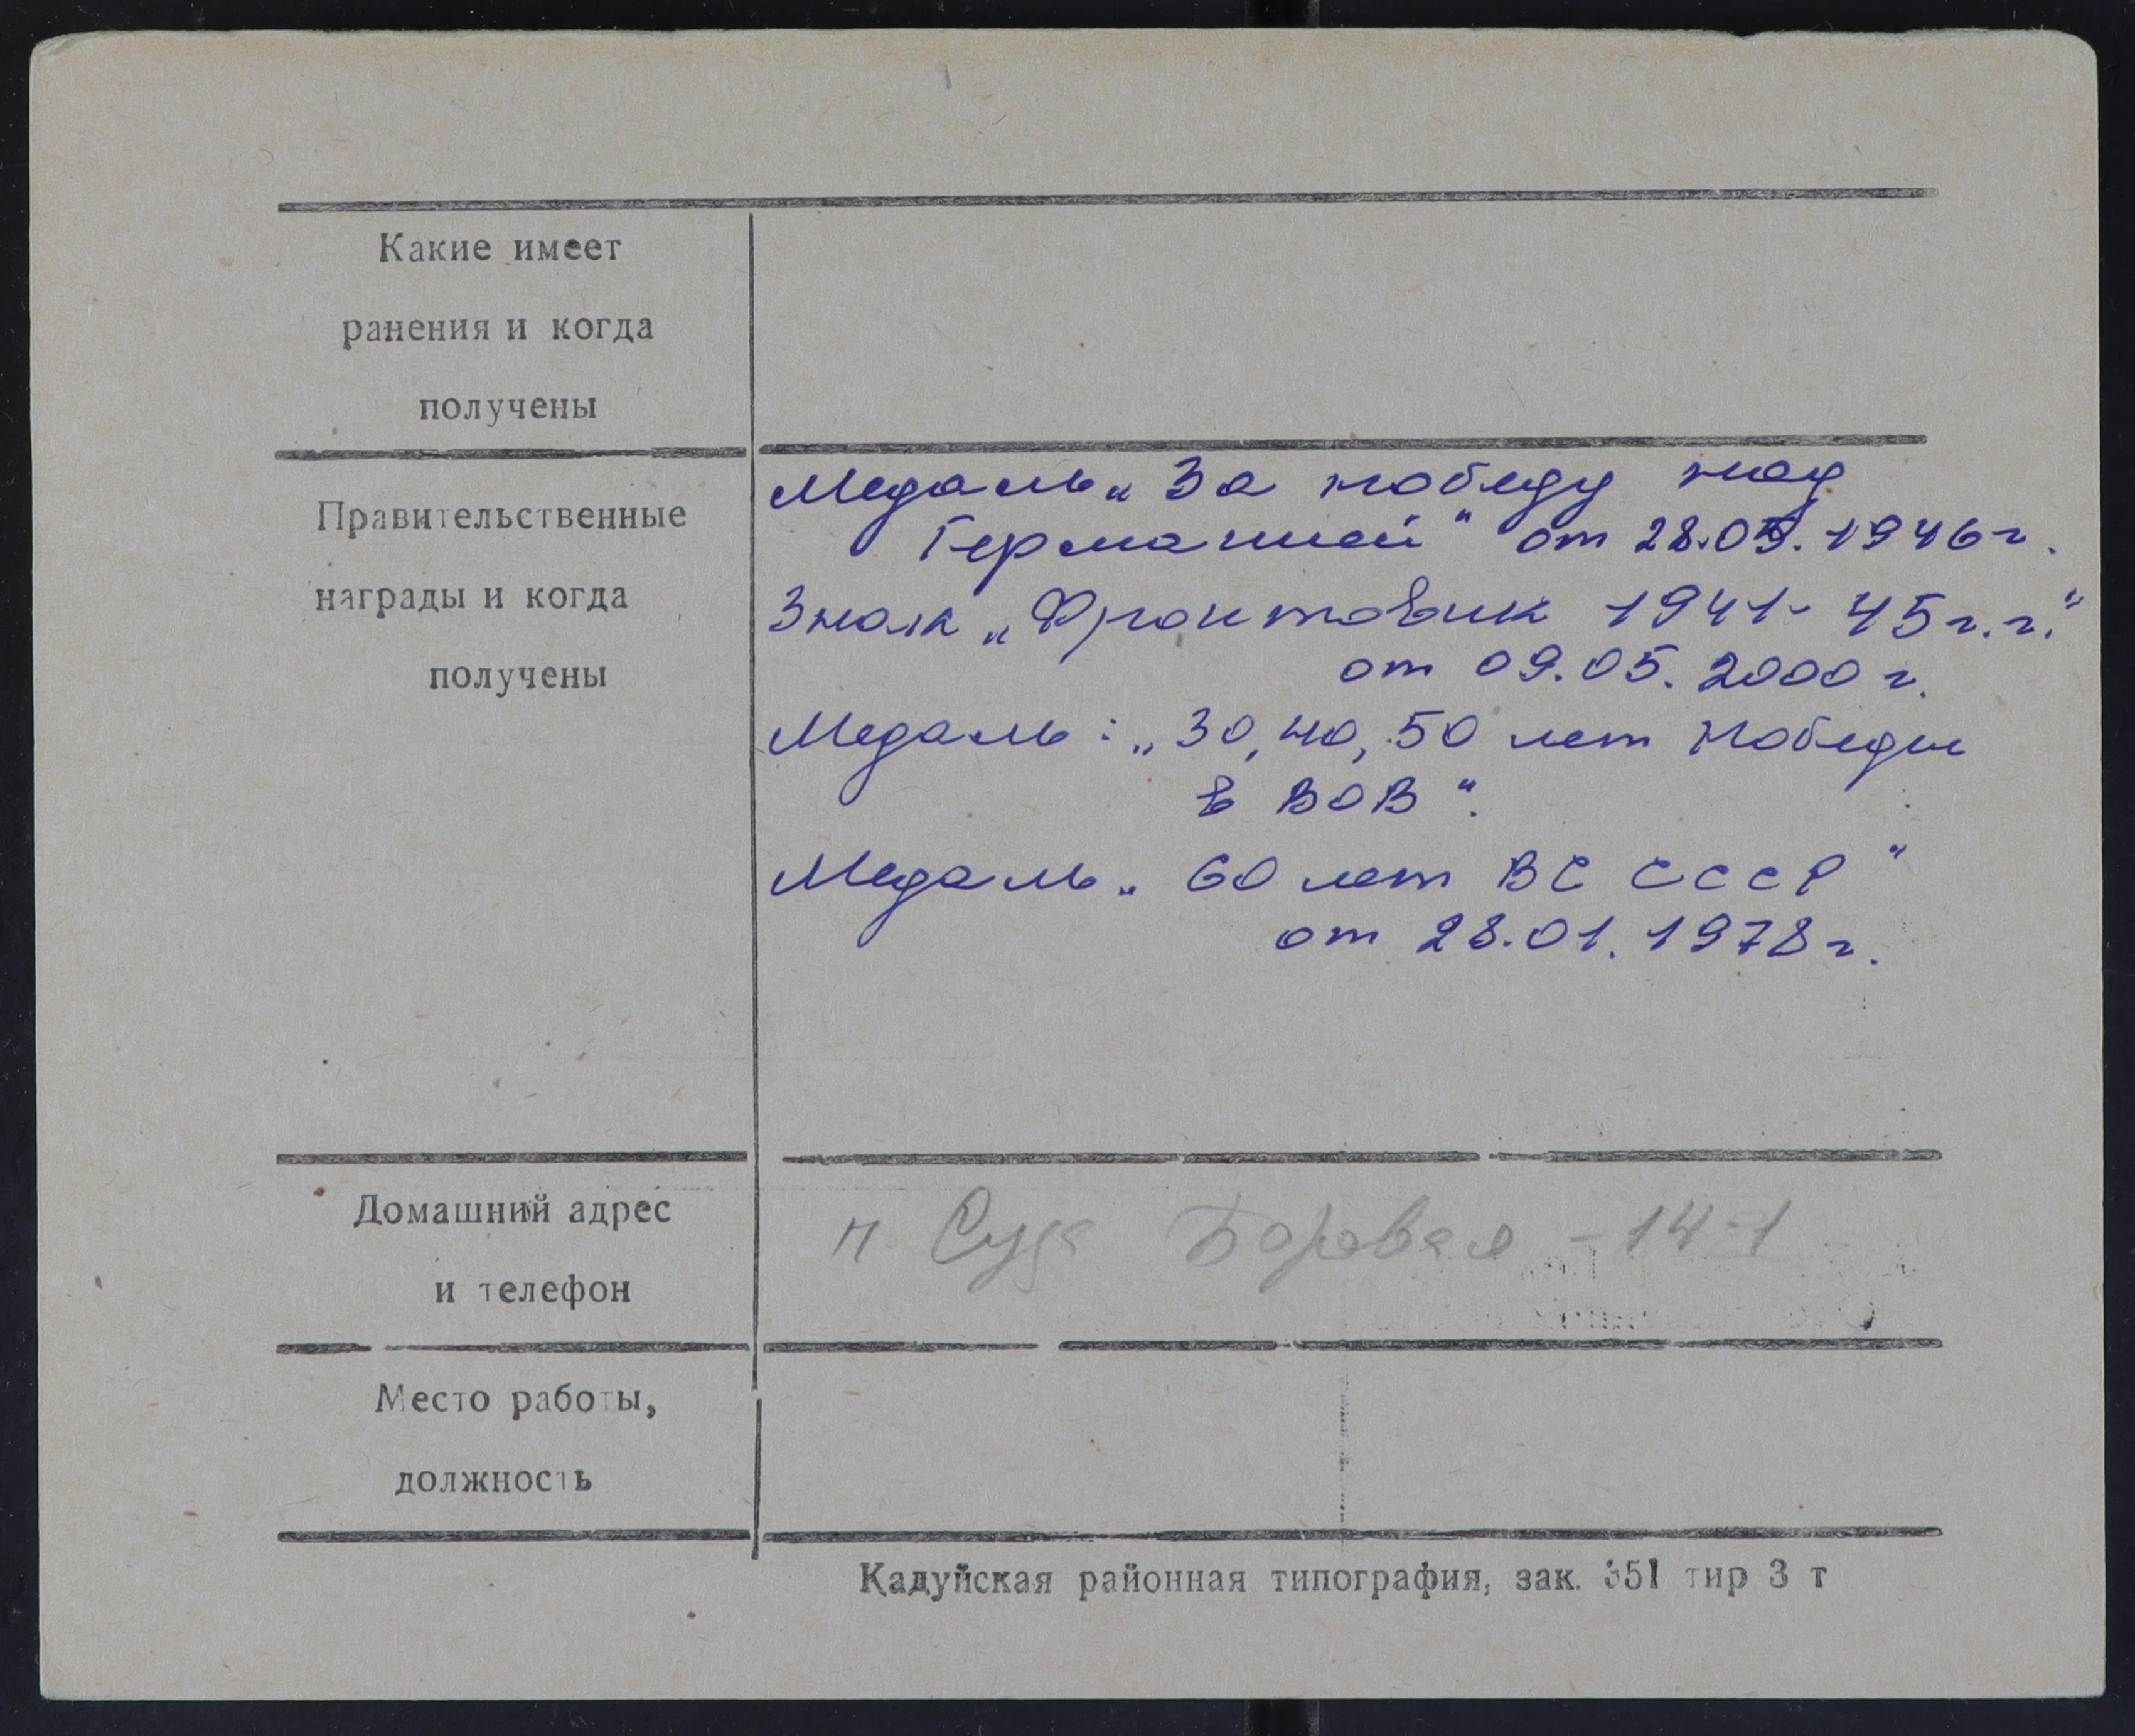 Какие имеет
ранения и когда
получены
Правительственные
награды и когда
получены
Медаль „За победу над
Германией“ от 28.09.1946 г.
Знак „Фронтовик 1941-45 г.г.“
от 09.05.2000 г.
Медаль: „30, 40, 50 лет Победы
в ВОВ“.
Медаль „60 лет ВС СССР“
от 28.01.1978 г.
Домашний адрес
и телефон
п. Суда Боровая - 14-1
Место работы,
должность
Кадуйская районная типография, зак. 351 тир 3 т